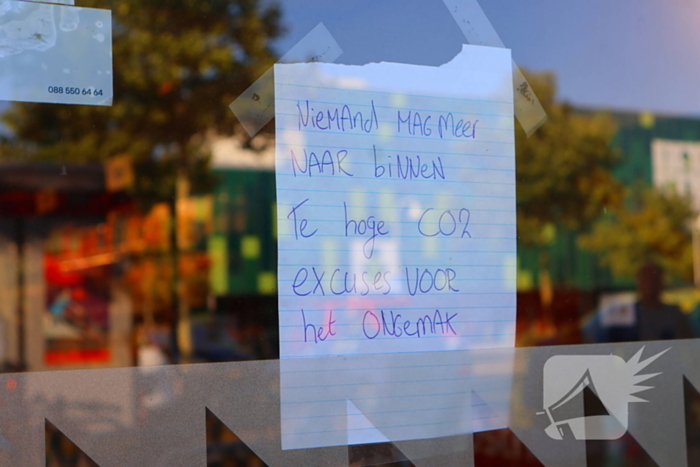 088 550 64 64
NiEMANd MAG MEER
NAAR biNNEN
TE hoge CO2
EXCUSES VOOR
het ONGEMAK